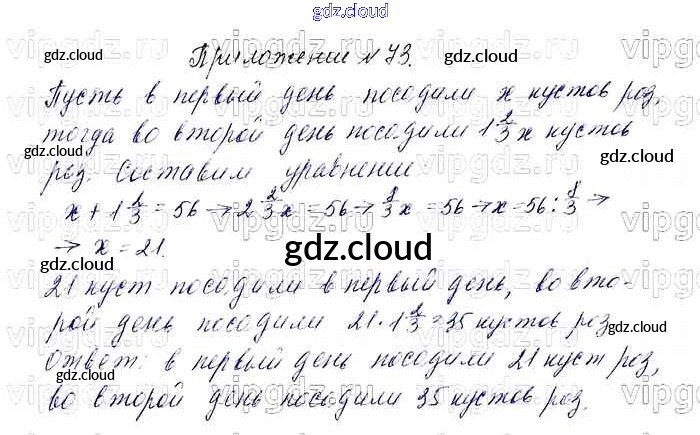 gdz.cloud
Приложение № 73.
Пусть в первый день посодили х кустов роз,
тогда во второй день посодили 1 2/3 х кустов
роз. Составим уравнение
х + 1 2/3 = 56 → 2 2/3 х = 56 → 8/3 х = 56 → х = 56 : 8/3 →
→ х = 21.
21 куст посодили в первый день, во вто-
рой день посодили 21 · 1 2/3 = 35 кустов роз
Ответ: в первый день посодили 21 куст роз,
во второй день посодили 35 кустов роз.
gdz.cloud
gdz.cloud
gdz.cloud
gdz.cloud
gdz.cloud
gdz.cloud
gdz.cloud
gdz.cloud
gdz.cloud